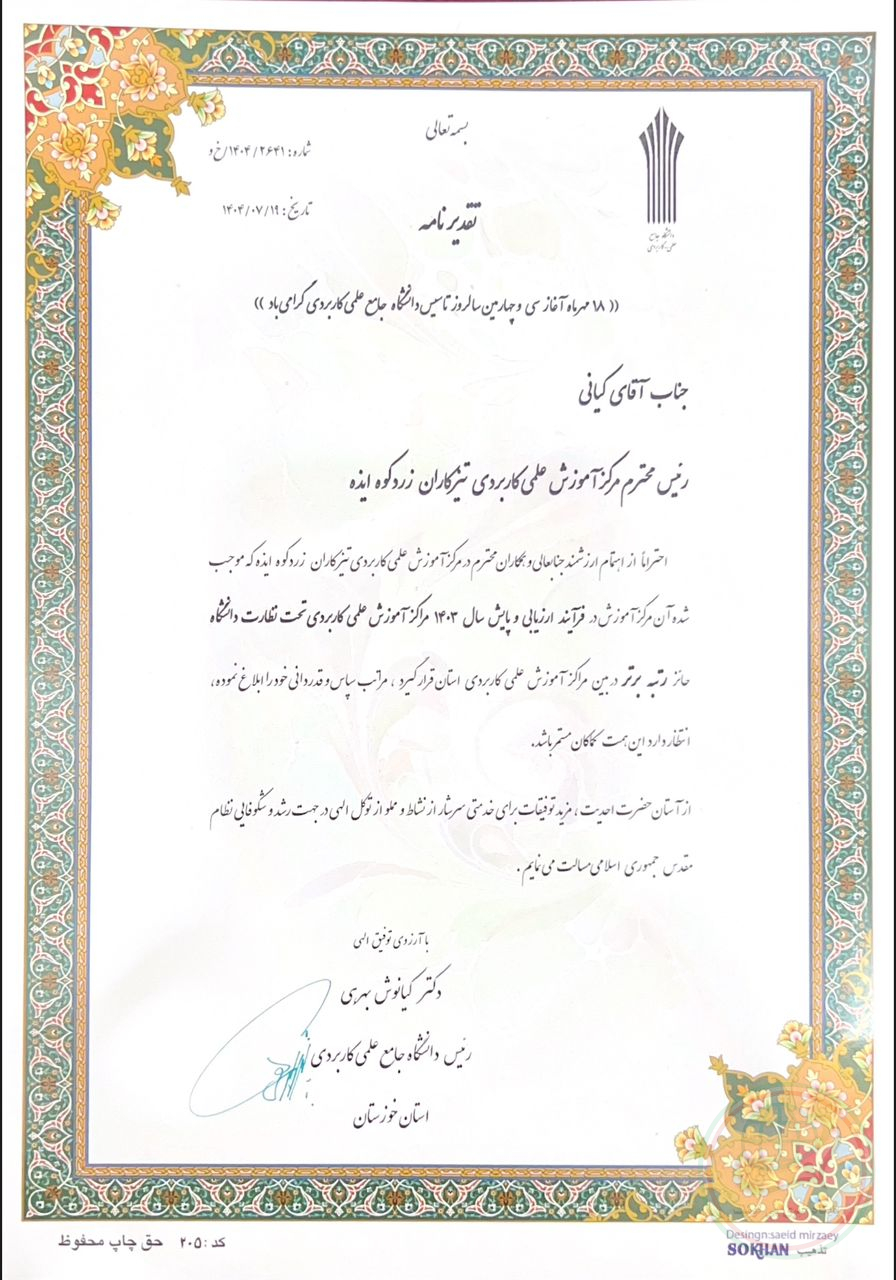 بسمه تعالی
شماره: ۱۴۰۴/۲۶۴۱/خ و
تاریخ: ۱۴۰۴/۰۷/۱۹
دانشگاه جامع
علمی-کاربردی
تقدیر نامه
(( ۱۸ مهرماه آغاز سی و چهارمین سالروز تاسیس دانشگاه جامع علمی کاربردی گرامی باد ))
جناب آقای کیانی
رئیس محترم مرکز آموزش علمی کاربردی تیزکاران زردکوه ایذه
احتراماً از اهتمام ارزشمند جنابعالی و همکاران محترم در مرکز آموزش علمی کاربردی تیزکاران زردکوه ایذه که موجب
شده آن مرکز آموزش در فرآیند ارزیابی و پایش سال ۱۴۰۳ مراکز آموزش علمی کاربردی تحت نظارت دانشگاه
حائز رتبه برتر در بین مراکز آموزش علمی کاربردی استان قرار گیرد ، مراتب سپاس و قدردانی خود را ابلاغ نموده،
انتظار دارد این همت کماکان مستمر باشد.
از آستان حضرت احدیت ، مزید توفیقات برای خدمتی سرشار از نشاط و مملو از توکل الهی در جهت رشد و شکوفایی نظام
مقدس جمهوری اسلامی مسالت می نمایم .
با آرزوی توفیق الهی
دکتر کیانوش بهری
رئیس دانشگاه جامع علمی کاربردی
استان خوزستان
کد : ۲۰۵ حق چاپ محفوظ
Desingn:saeid mirzaey
SOKHAN تذهیب